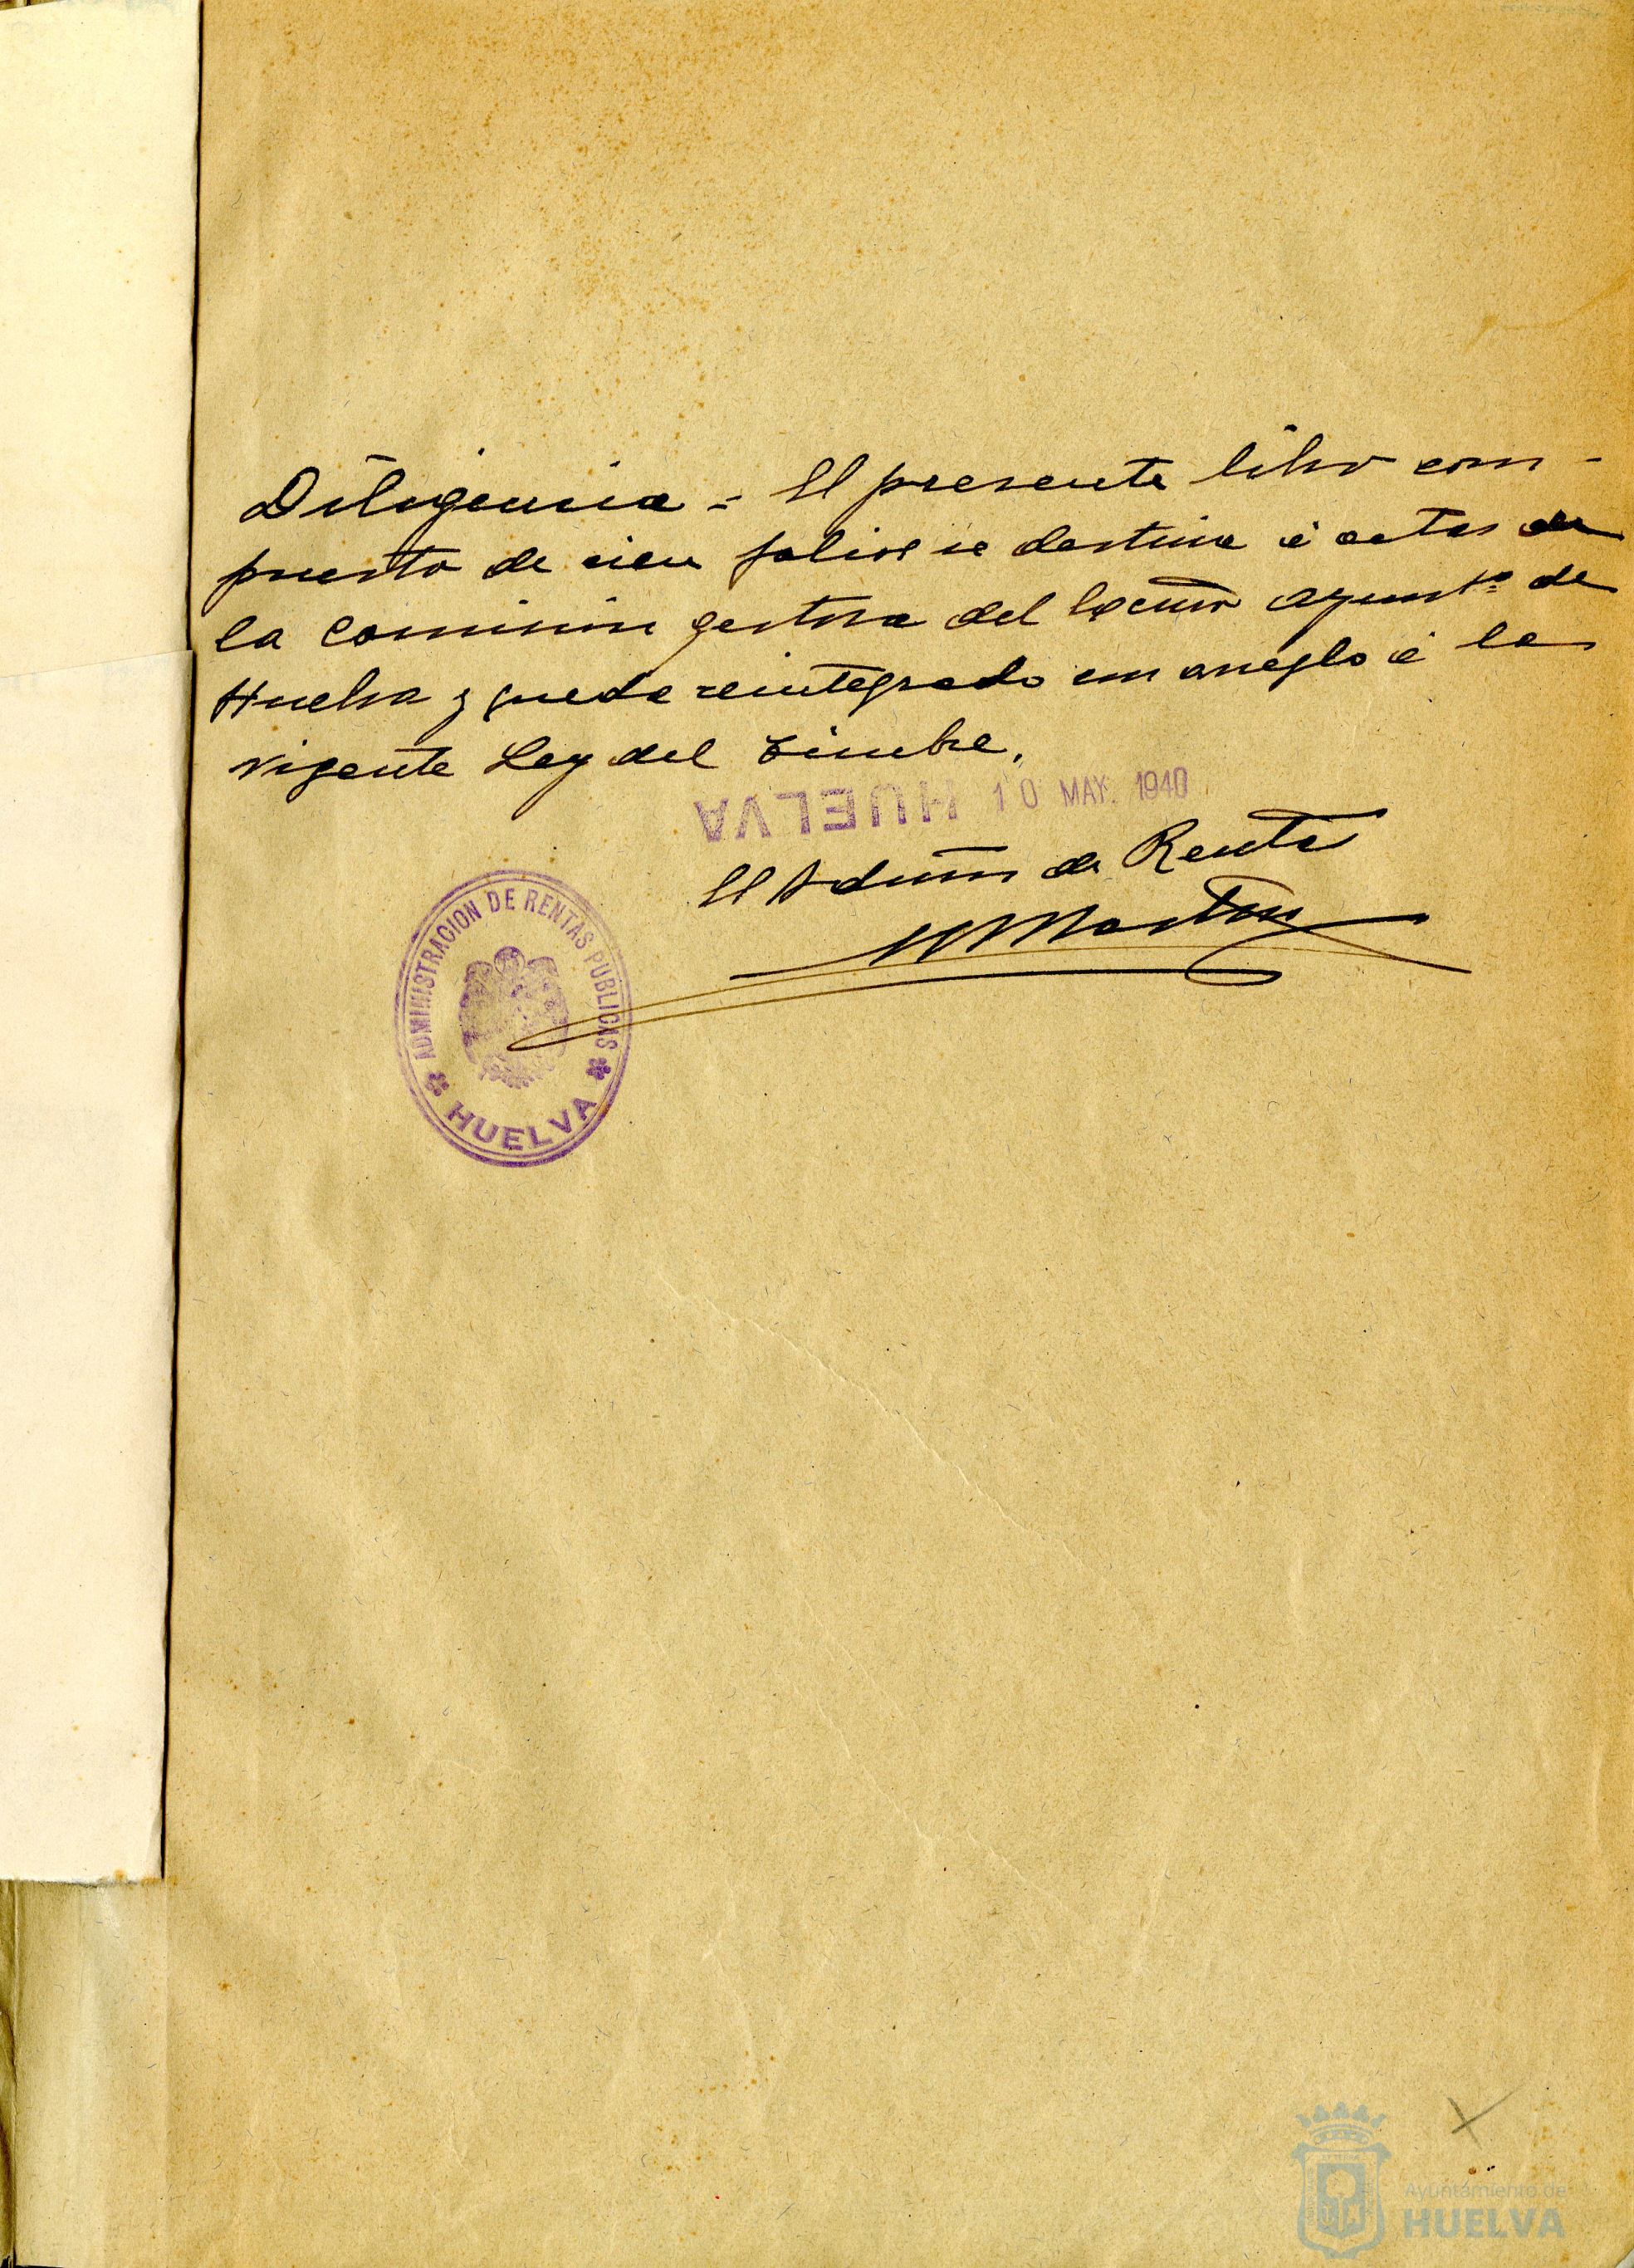 Diligencia = El presente libro com-
puesto de cien folios se destina á actas de
la Comision gestora del Excmo Ayunt.º de
Huelva y queda reintegrado con arreglo á la
vigente Ley del Timbre.
HUELVA 10 MAY. 1940
El Admor de Rentas
ADMINISTRACION DE RENTAS PUBLICAS
HUELVA
Ayuntamiento de
HUELVA